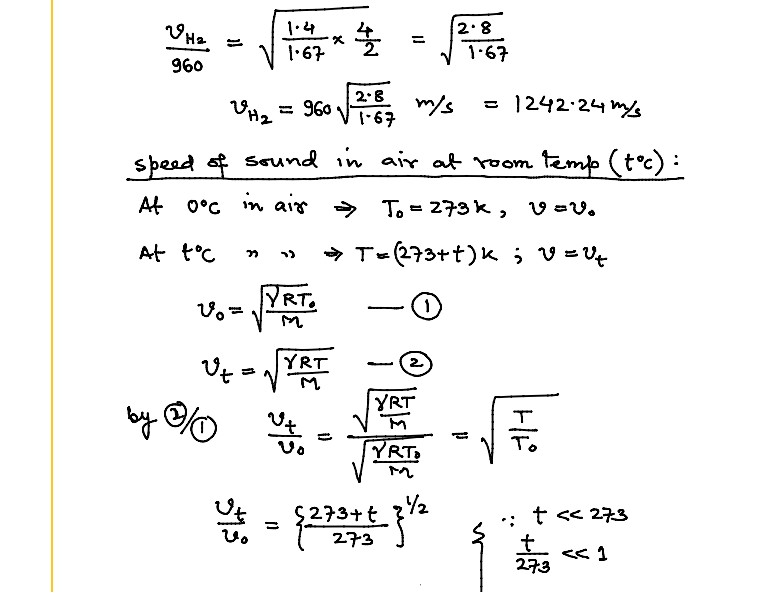 v_H₂/960 = √(1.4/1.67 × 4/2) = √(2.8/1.67)
v_H₂ = 960 √(2.8/1.67) m/s = 1242.24 m/s
speed of sound in air at room temp (t°c) :
At 0°C in air ⇒ T₀ = 273k, v = v₀
At t°C " " ⇒ T = (273+t)k ; v = v_t
v₀ = √(γRT₀/M) — ①
v_t = √(γRT/M) — ②
by ②/① v_t/v₀ = √(γRT/M) / √(γRT₀/M) = √(T/T₀)
v_t/v₀ = {(273+t)/273}^1/2 { ∵ t << 273
t/273 << 1